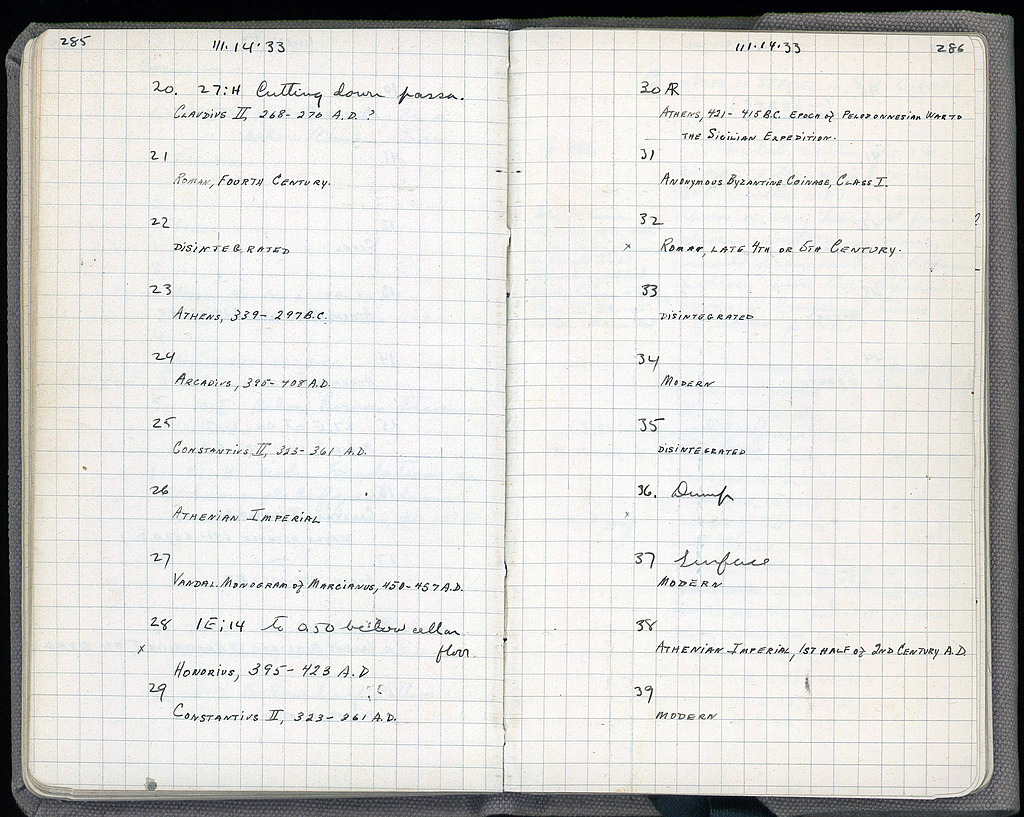 285
III·14·33
20. 27:H Cutting down passa.
CLAUDIUS II, 268-270 A.D. ?
21
ROMAN, FOURTH CENTURY.
22
DISINTEGRATED
23
ATHENS, 339-297 B.C.
24
ARCADIUS, 395-408 A.D.
25
CONSTANTIUS II, 323-361 A.D.
26
ATHENIAN IMPERIAL
27
VANDAL. MONOGRAM of MARCIANUS, 450-457 A.D.
28 1E;14 to 0.50 below cellar
floor.
x
HONORIUS, 395-423 A.D
29
CONSTANTIUS II, 323-361 A.D.
III·14·33
286
30 AR
ATHENS, 421-415 B.C. EPOCH of PELOPONNESIAN WAR TO
THE SICILIAN EXPEDITION.
31
ANONYMOUS BYZANTINE COINAGE, CLASS I.
32
x ROMAN, LATE 4TH OR 5TH CENTURY.
33
DISINTEGRATED
34
MODERN
35
DISINTEGRATED
36. Dump
x
37 Surface
MODERN
38
ATHENIAN IMPERIAL, 1ST HALF of 2ND CENTURY A.D
39
MODERN